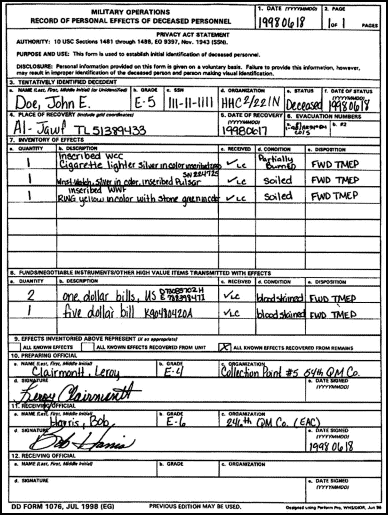 MILITARY OPERATIONS
RECORD OF PERSONAL EFFECTS OF DECEASED PERSONNEL
1. DATE (YYYYMMDD)
19980618
2. PAGE
1 of 1 PAGES
PRIVACY ACT STATEMENT
AUTHORITY: 10 USC Sections 1481 through 1488, EO 9397, Nov. 1943 (SSN).
PURPOSE AND USE: This form is used to establish initial identification of deceased personnel.
DISCLOSURE: Personal information provided on this form is given on a voluntary basis. Failure to provide this information, however, may result in improper identification of the deceased person and person making visual identification.
3. TENTATIVELY IDENTIFIED DECEDENT
a. NAME (Last, First, Middle Initial) (or Unidentified)
Doe, John E.
b. GRADE
E-5
c. SSN
111-11-1111
d. ORGANIZATION
HHC 2/221N
e. STATUS
Deceased
f. DATE OF STATUS (YYYYMMDD)
19980618
4. PLACE OF RECOVERY (Include grid coordinates)
Al-Jawf TL 51389433
5. DATE OF RECOVERY (YYYYMMDD)
19980617
6. EVACUATION NUMBERS
b. #2
7. INVENTORY OF EFFECTS
a. QUANTITY b. DESCRIPTION c. RECEIVED d. CONDITION e. DISPOSITION
1 Cigarette lighter silver in color inscribed WCC ✓LC Partially Burned FWD TMEP
1 Wrist watch, silver in color, inscribed Pulsar SN 224725 ✓LC soiled FWD TMEP
1 RING yellow in color with stone green in color inscribed WWT ✓LC soiled FWD TMEP
8. FUNDS/NEGOTIABLE INSTRUMENTS/OTHER HIGH VALUE ITEMS TRANSMITTED WITH EFFECTS
a. QUANTITY b. DESCRIPTION c. RECEIVED d. CONDITION e. DISPOSITION
2 one dollar bills, US ✓LC bloodstained FWD TMEP
1 five dollar bill K90480420A ✓LC bloodstained FWD TMEP
9. EFFECTS INVENTORIED ABOVE REPRESENT (X as appropriate)
ALL KNOWN EFFECTS ALL KNOWN EFFECTS RECOVERED FROM UNIT X ALL KNOWN EFFECTS RECOVERED FROM REMAINS
10. PREPARING OFFICIAL
a. NAME (Last, First, Middle Initial)
Clairmontt, Leroy
b. GRADE
E-4
c. ORGANIZATION
Collection Point #5 54th QM Co.
d. SIGNATURE
Leroy Clairmontt
e. DATE SIGNED (YYYYMMDD)
11. RECEIVING OFFICIAL
a. NAME (Last, First, Middle Initial)
Harris, Bob
b. GRADE
E-6
c. ORGANIZATION
246th QM Co. (EAC)
d. SIGNATURE
Bob Harris
e. DATE SIGNED (YYYYMMDD)
19980618
12. RECEIVING OFFICIAL
a. NAME (Last, First, Middle Initial)
b. GRADE
c. ORGANIZATION
d. SIGNATURE
e. DATE SIGNED (YYYYMMDD)
DD FORM 1076, JUL 1998 (EG)
PREVIOUS EDITION MAY BE USED.
Designed using Perform Pro, WHS/DIOR, Jun 98